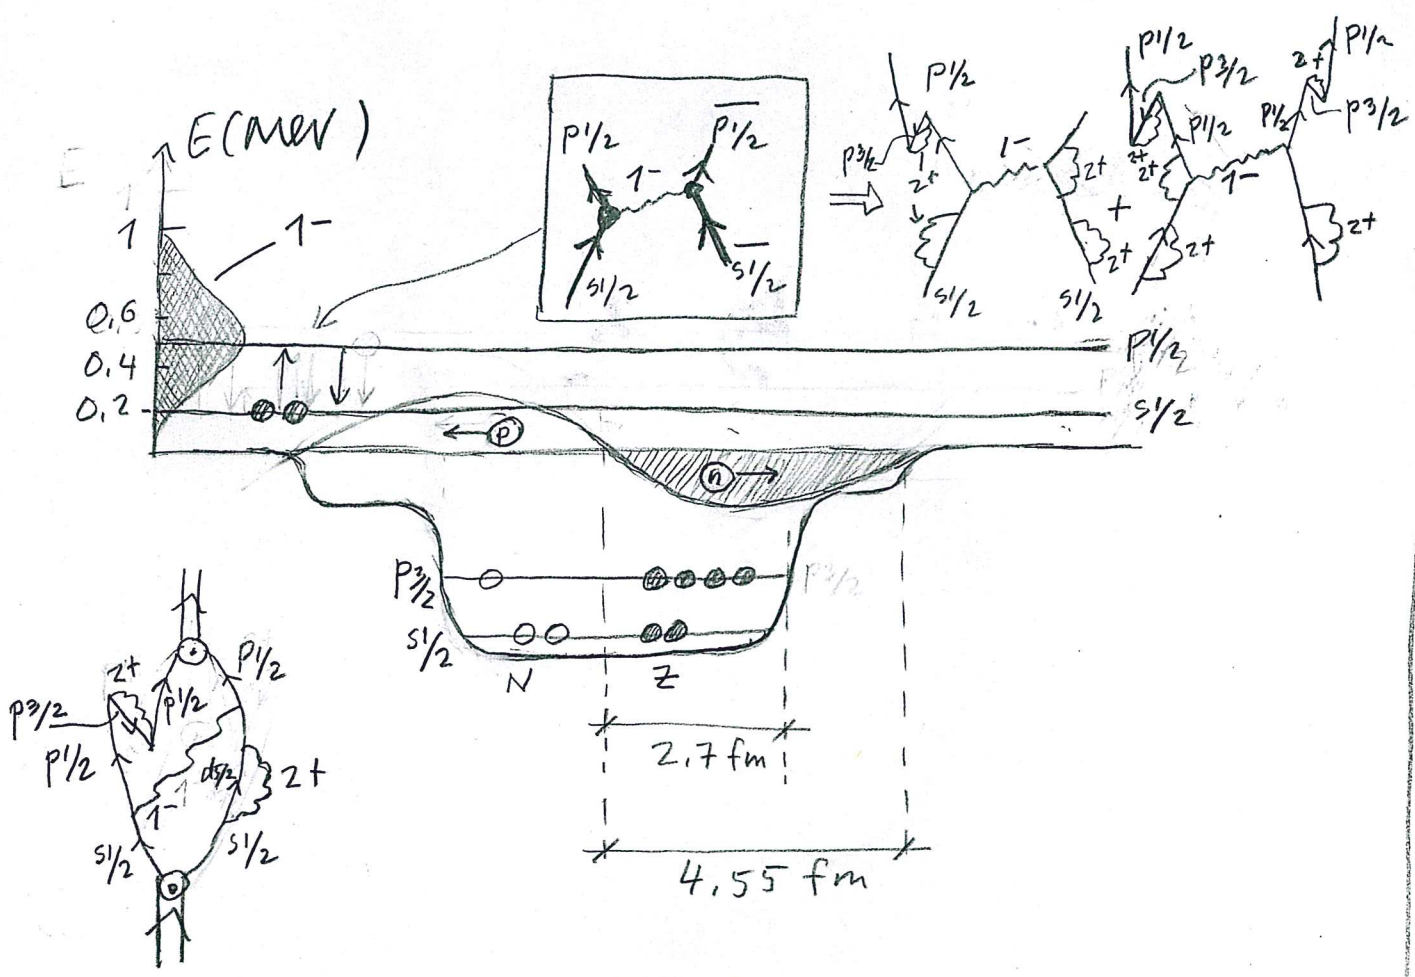 E(MeV)
E
1
1-
0,6
0,4
0,2
p1/2
p1/2
1-
s1/2
s1/2
p1/2
p3/2
2+
1-
2+
2+
s1/2
s1/2
+
p1/2
p3/2
p1/2
2+
2+
1-
2+
p1/2
2+
p1/2
p3/2
2+
p1/2
s1/2
p
n
p3/2
p3/2
s1/2
N
Z
2,7 fm
4,55 fm
2+
p1/2
p3/2
p1/2
p1/2
d5/2
2+
1-
s1/2
s1/2